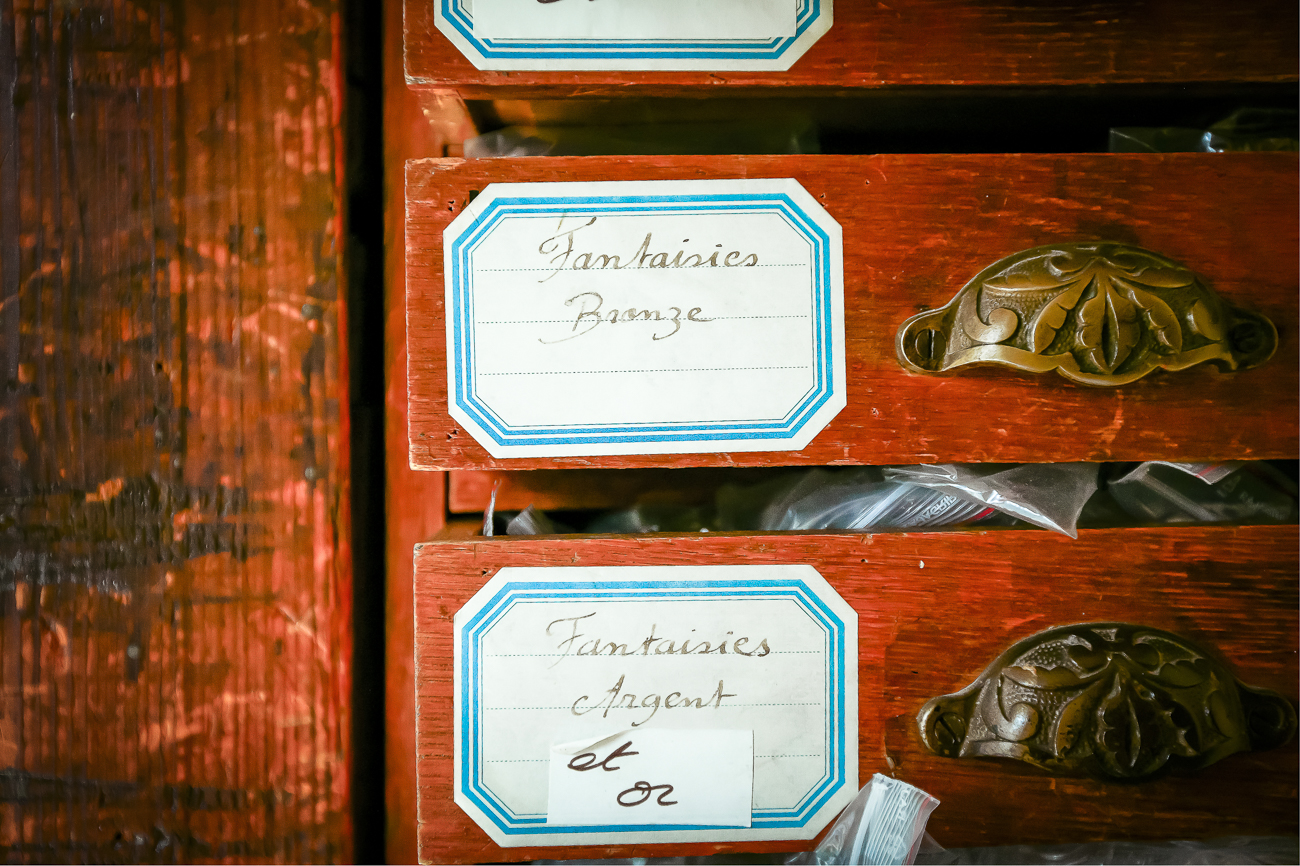 Fantaisies
Bronze
Fantaisies
Argent
et
or